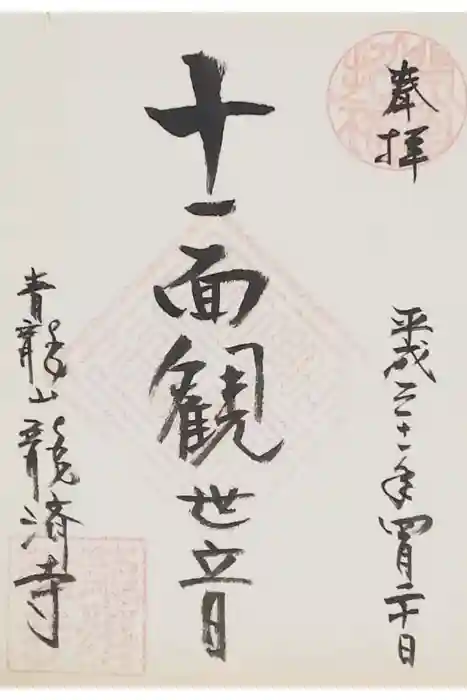 奉拝
平成三十一年四月二十日
十一面観世音
青龍山 龍済寺